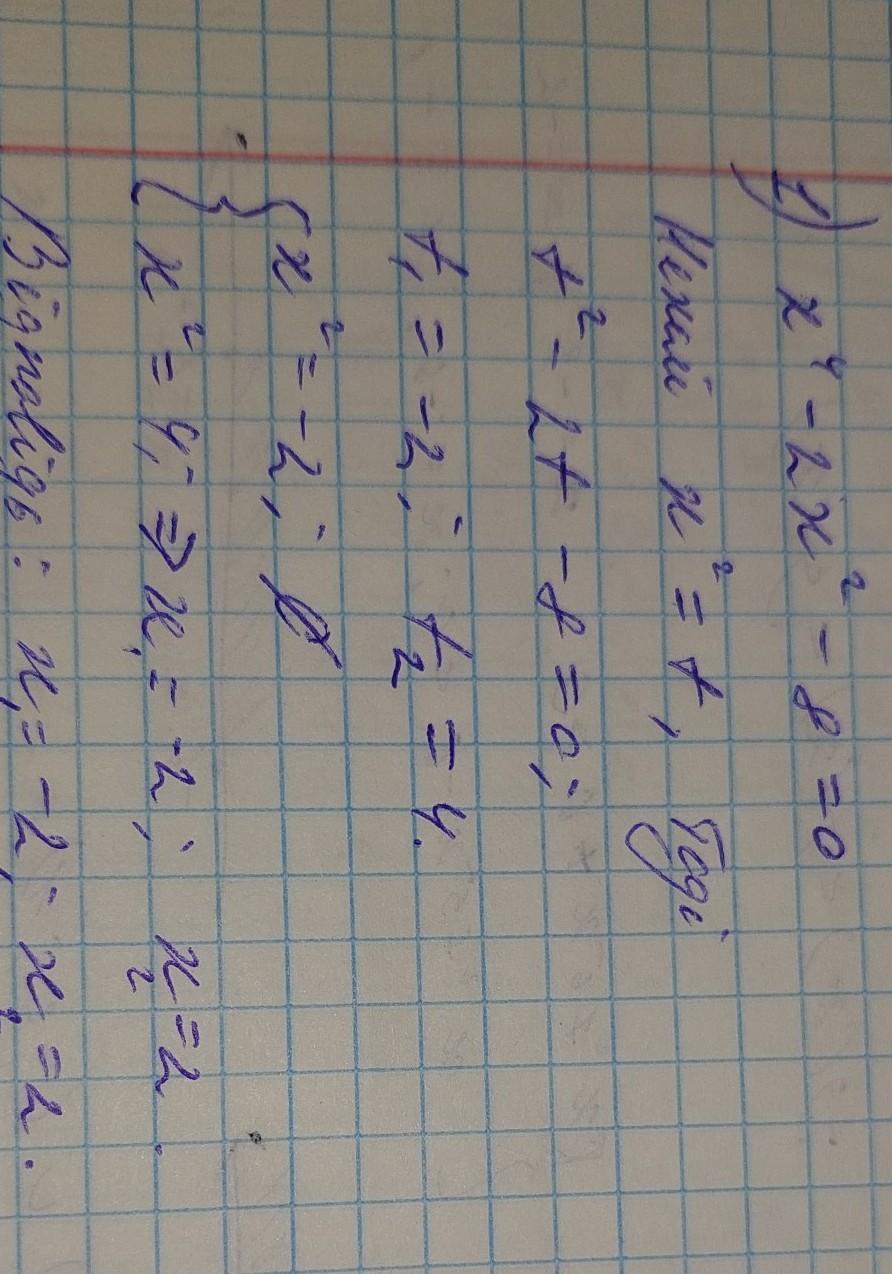 1) x⁴ - 2x² - 8 = 0
Нехай x² = t, Тоді
t² - 2t - 8 = 0;
t₁ = -2; t₂ = 4.
{ x² = -2; ∅
{ x² = 4; ⇒ x₁ = -2; x₂ = 2.
Відповідь: x₁ = -2; x₂ = 2.